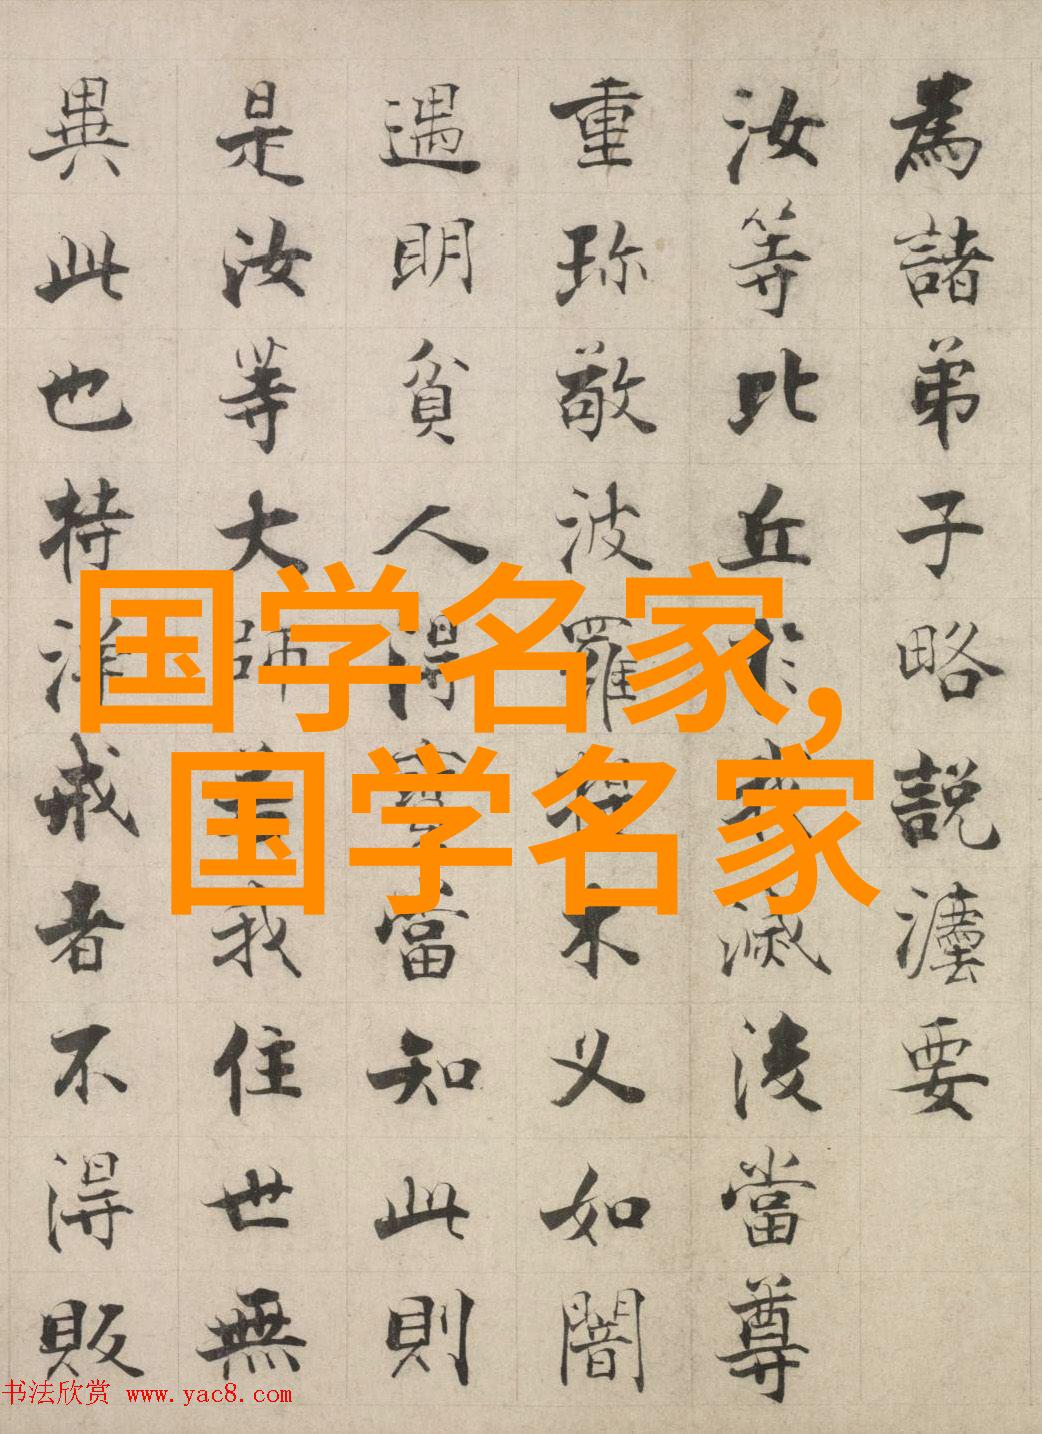 為諸弟子略説灋要
汝等比丘於我滅後當尊
重珎敬波羅提木叉如闇
遇明貧人得寶當知此則
是汝等大師若我住世無
異此也持淨戒者不得販
国学名家,
国学名家
书法欣赏 www.yac8.com